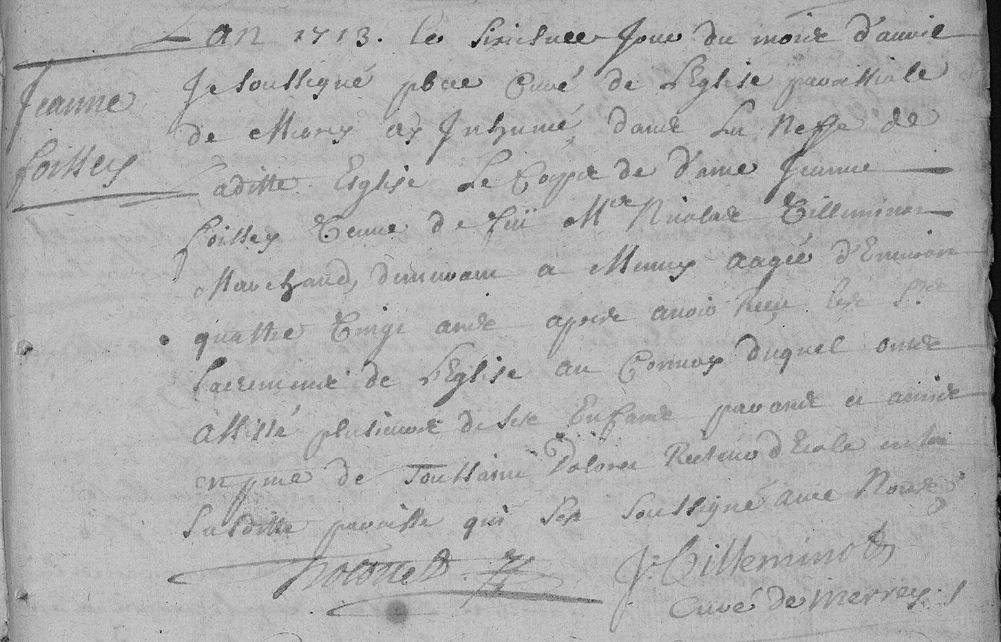 AN 1713. le sixiesme Jour du mois d'avril
Jeanne
Je soussigné pbre Curé de L'Eglise paroissiale
de Merey ay Inhumé dans La Neffe de
foissey
Laditte Esglise Le Corps de d'ame Jeanne
foissey veuve de feü Mre Nicolas Villeminot
Marchand, demeurant a Merrey aagée d'Environ
quattre vingt ans apres avoir Receu les Sts
sacremens de L'Eglise au Convoy duquel onts
assisté plusieurs de ses Enfans parans et amis
en pnce de Toussaint Recteur d'Ecole en la
susditte paroisse qui s'est soussigné avec Nous
J. Villeminot
Curé de merrey